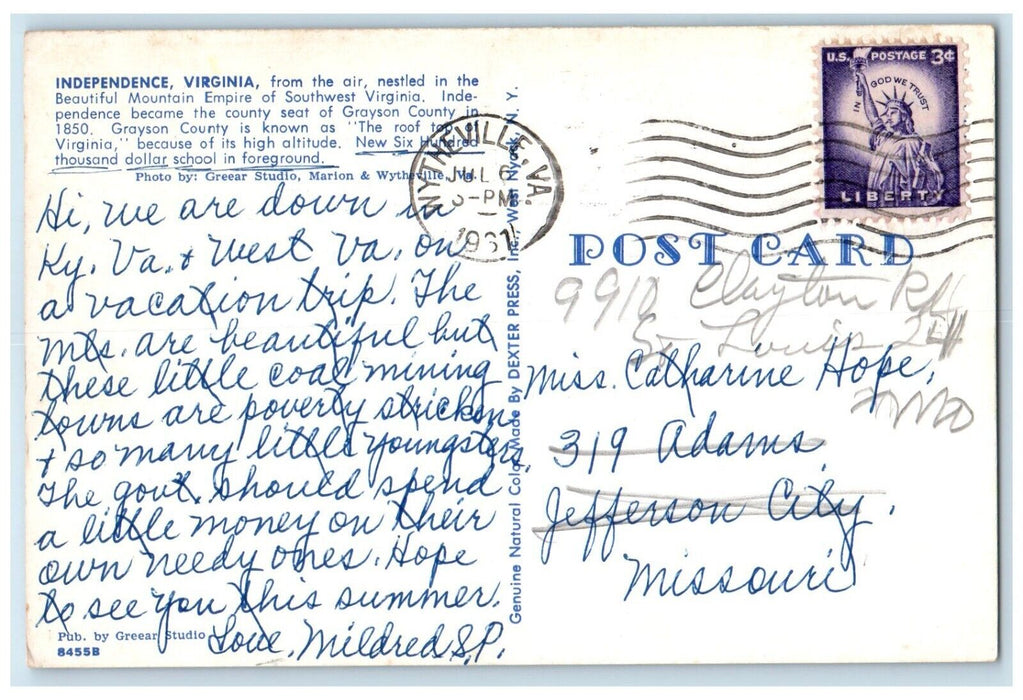 INDEPENDENCE, VIRGINIA, from the air, nestled in the
Beautiful Mountain Empire of Southwest Virginia. Inde-
pendence became the county seat of Grayson County in
1850. Grayson County is known as "The roof top of
Virginia," because of its high altitude. New Six Hundred
thousand dollar school in foreground.
Photo by: Greear Studio, Marion & Wytheville, Va.
Hi, we are down in
Ky. Va. & West Va. on
a vacation trip. The
mts. are beautiful but
these little coal mining
towns are poverty stricken
& so many little youngsters.
The govt. should spend
a little money on their
own needy ones. Hope
to see you this summer.
Love, Mildred S.P.
Pub. by Greear Studio
8455B
Genuine Natural Color Made By DEXTER PRESS, Inc., West Nyack, N. Y.
WYTHEVILLE, VA.
JUL 6
3-PM
1961
U.S. POSTAGE 3¢
IN GOD WE TRUST
LIBERTY
POST CARD
9910 Clayton Rd
St Louis 24
Mo
Miss. Catharine Hope,
319 Adams
Jefferson City,
Missouri